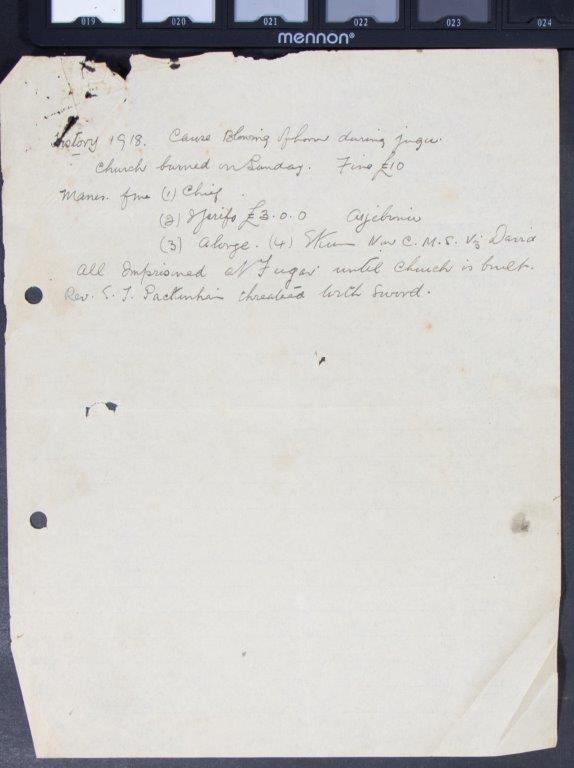 019 020 021 022 023 024
mennon®
History 1918. Cause Blowing of horn during
Church burned on Sunday. Fine £10
(1) Chief.
(2) £3.0.0
(3) (4) C.M.S. Viz David
All Imprisoned at Fugar until Church is built.
Rev. S. J. Packenham threated with Sword.